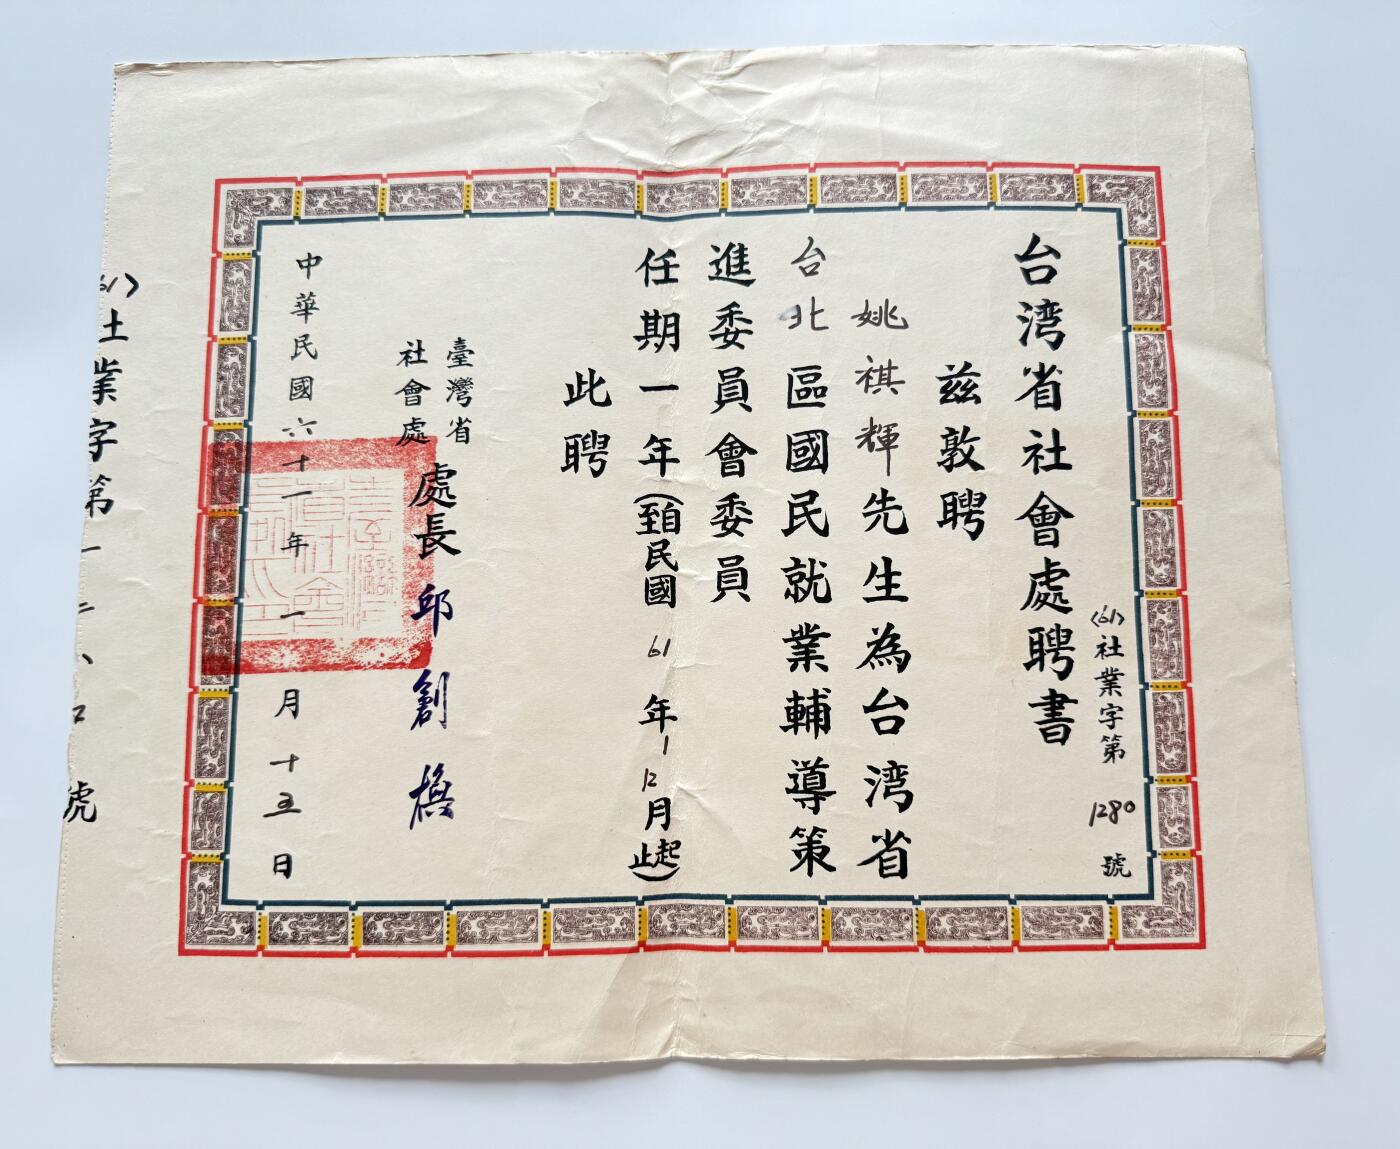 台湾省社會處聘書
(61)社業字第1280號
茲敦聘
姚祺輝先生為台湾省
台北區國民就業輔導策
進委員會委員
任期一年(自至民國61年1 12月起止)
此聘
臺灣省
社會處
處長邱創煥
中華民國六十一年一月十五日
社業字第一二八〇號